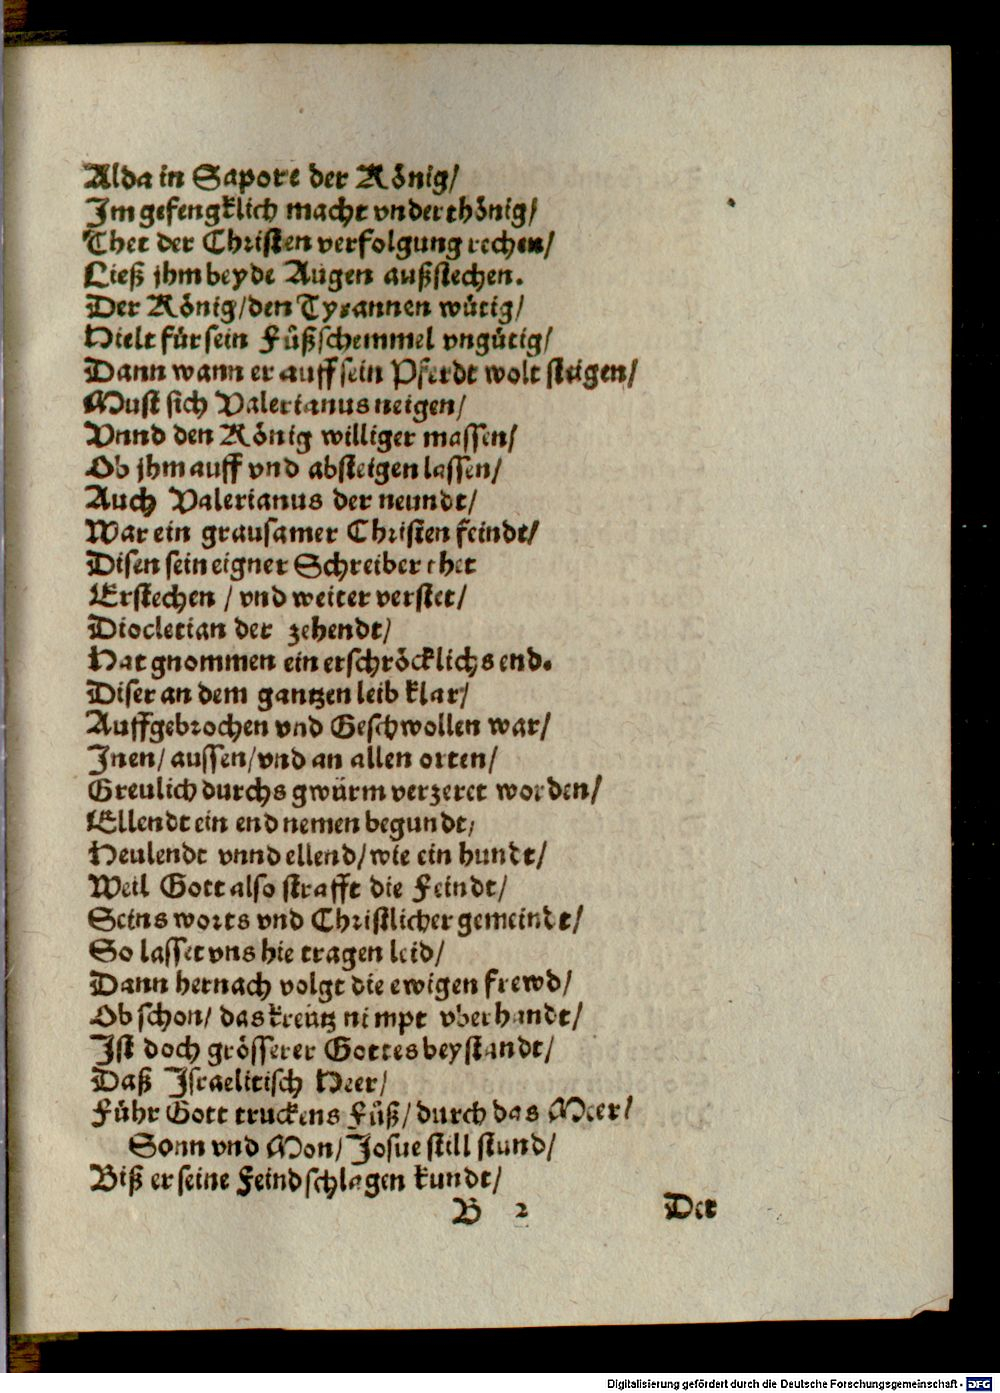 Alda in Sapore der König/
Im gefengklich macht vnderthönig/
Thet der Christen verfolgung rechen/
Ließ jhm beyde Augen außstechen.
Der König/den Tyrannen wütig/
Hielt für sein Fůßschemmel vngütig/
Dann wann er auff sein Pferdt wolt steigen/
Must sich Valerianus neigen/
Vnnd den König williger massen/
Ob jhm auff vnd absteigen lassen/
Auch Valerianus der neundt/
War ein grausamer Christen feindt/
Disen sein eigner Schreiber thet
Erstechen / vnd weiter verstet/
Diocletian der zehendt/
Hat gnommen ein erschröcklichs end.
Diser an dem gantzen leib klar/
Auffgebrochen vnd Geschwollen war/
Inen/ aussen/vnd an allen orten/
Greulich durchs gwürm verzeret worden/
Ellendt ein end nemen begundt/
Heulendt vnnd ellend/wie ein hundt/
Weil Gott also strafft die Feindt/
Seins worts vnd Christlicher gemeindt/
So lasset vns hie tragen leid/
Dann hernach volgt die ewigen frewd/
Ob schon/ das kreütz nimpt vberhandt/
Ist doch grösserer Gottes beystandt/
Daß Israelitisch Heer/
Führ Gott truckens Fůß/durch das Meer/
Sonn vnd Mon/Josue still stund/
Biß er seine Feind schlagen kundt/
B 2 Der
Digitalisierung gefördert durch die Deutsche Forschungsgemeinschaft - DFG